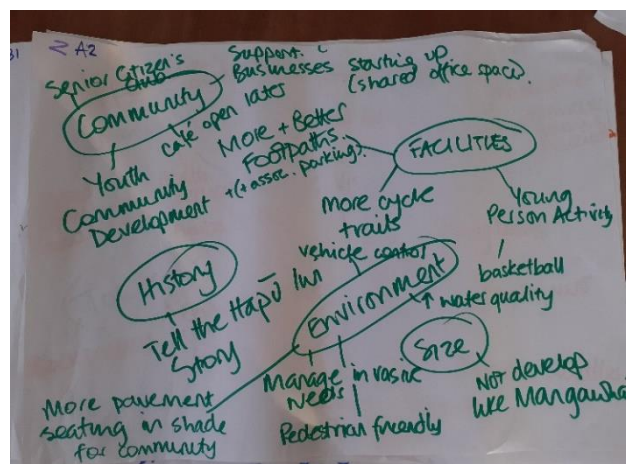 A2
Senior Citizen's
Club
Community
Support
Businesses starting up
(shared office space).
café open later
Youth
Community
Development
More + Better
Footpaths.
+(+ assoc. parking).
FACILITIES
more cycle
trails
Young
Person Activity
basketball
History
Tell the Hapū
Story
vehicle control
Environment
↑ water quality
Size
Not develop
like
Manage invasive
Pedestrian friendly
More pavement
seating in shade
for community